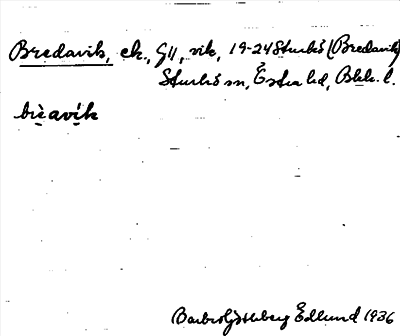 Bredavik, ek., G11, vik, 19-24 Sturkö (Bredavik)
Sturkö sn, Östra hd, Blek. l.
brèavik
Barbro Göthberg Edlund 1936